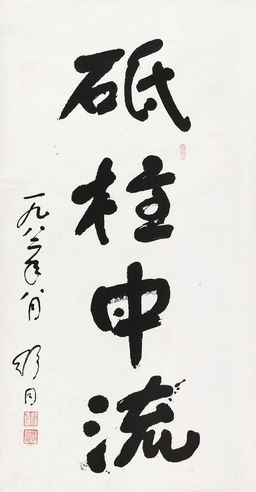 砥柱中流
一九八二年八月 舒同